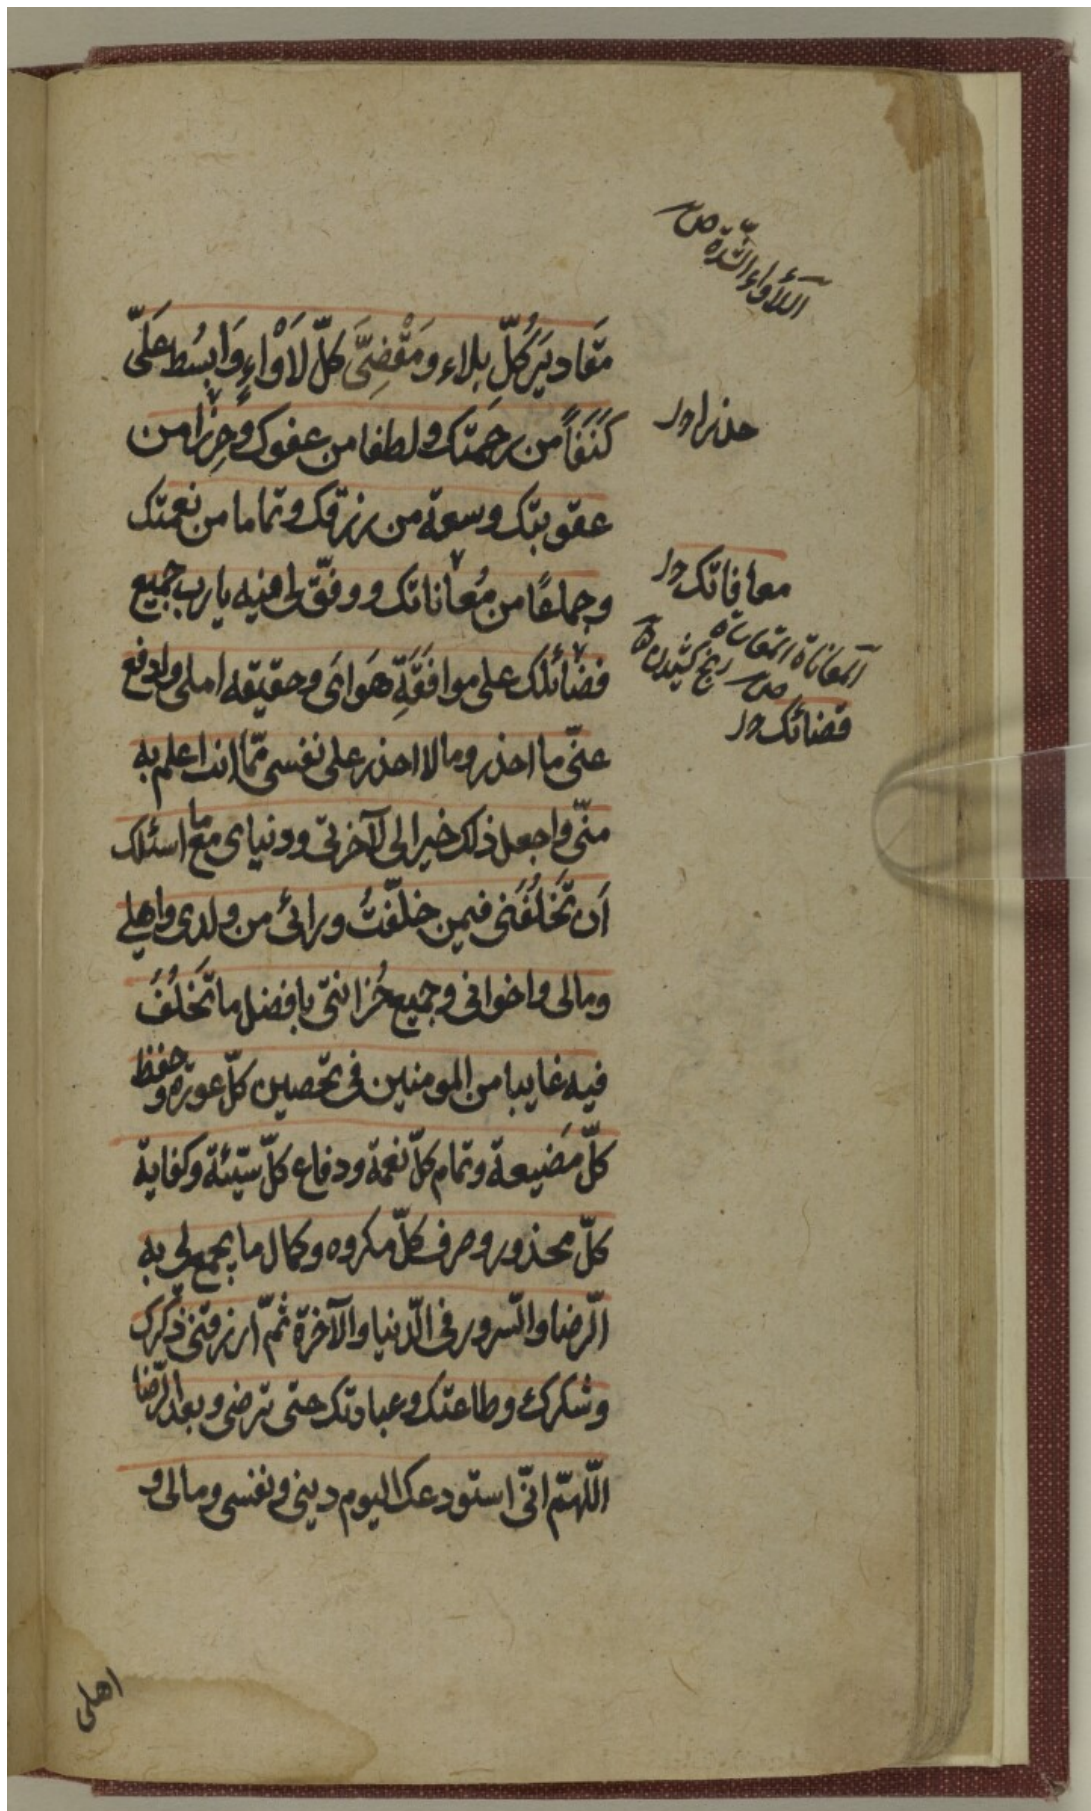 اللأواء الشدة ص
مَقَاديرَ كُلِّ بلاء ومَقْضِيَّ كلّ لَاْوَاءٍ وَابسُط عَلَىّ
كَنَفًا من رحَمتك ولطفا من عفوك وحِرْزًا من
حذرا خ ل
عقوبتك وسعة من رزقك وتماما من نعمتك
وجماعًا من مُعاناتك ووفّق لى فيه يا رب جميع
معافاتك خ ل
المعاناة المقاساة
رنج كشيدن ص
فضائلك على موافَقَةِ هَوَاىَ وحقيقه املى وادفع
قضائك خ ل
عنّى ما احذر وما لا احذر على نفسى ممّا انت اعلم به
منّى واجعل ذلك خيرا لى لآخرتى ودنياى مع ما اسئلك
اَن تَخلُفَنى فيمن خلّفتُ ورائى من ولدى واهلى
ومالى واخوانى وجميع حُزانتى بافضل ما تَخلُفُ
فيه غايبا من المومنين فى تحصين كلّ عورة وحفظ
كلّ مَضيعة وتمام كلّ نعمة ودفاع كلّ سيّئة وكفاية
كلّ محذور وصرف كلّ مكروه وكمال ما يجمع لى به
الرّضا والسّرور فى الدّنيا والآخرة ثمّ ارزقنى ذكرك
وشكرك وطاعتك وعبادتك حتى ترضى وبعد الرّضا
اللّهمّ انّى استودعك اليوم دينى ونفسى ومالى و
اهلى